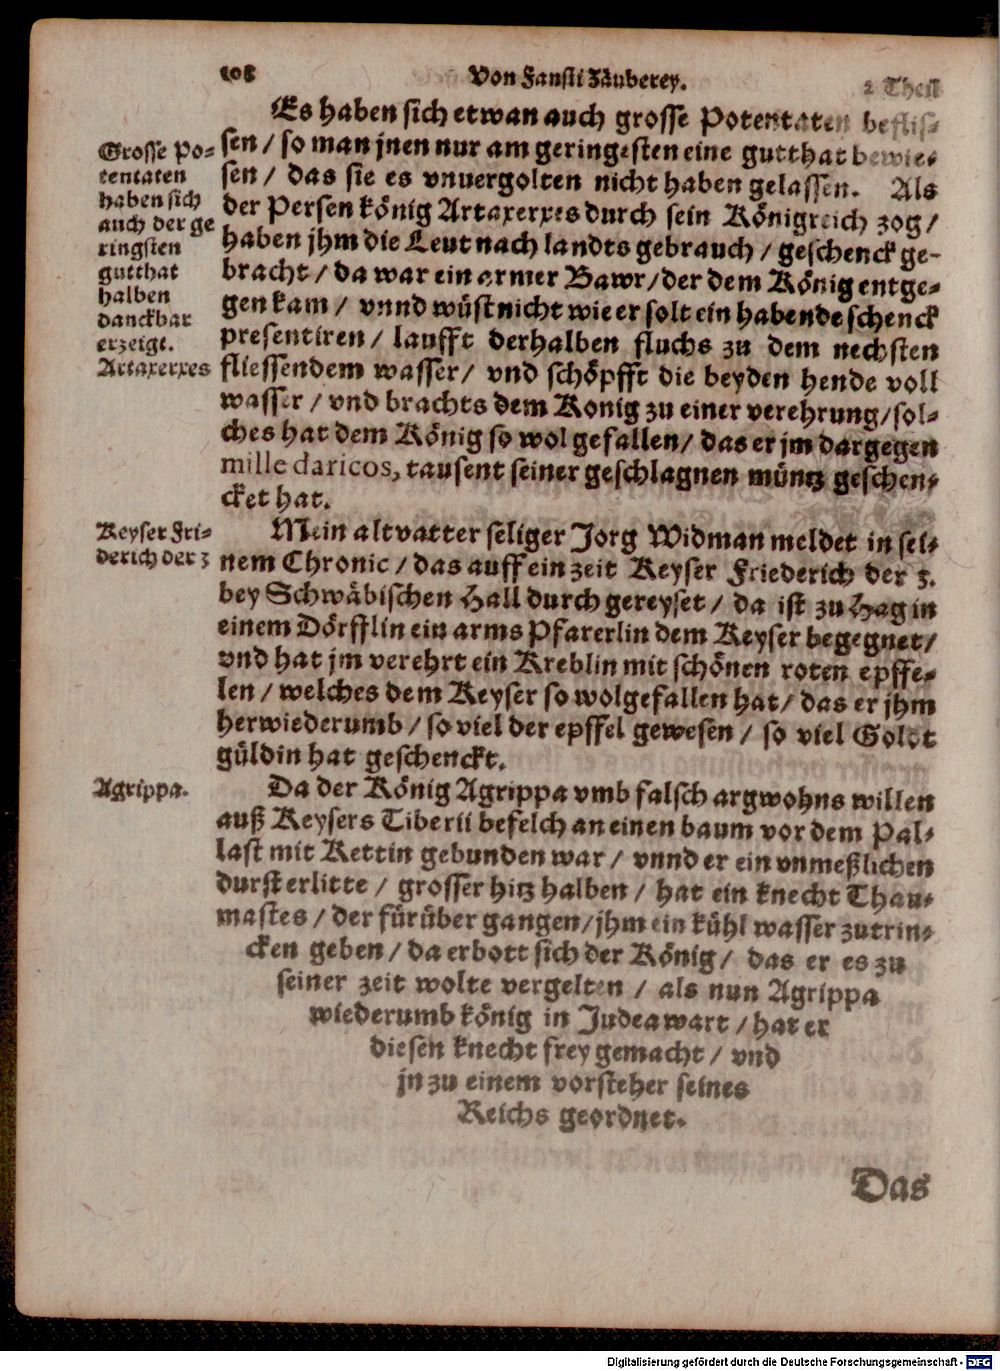 108 Von Fausti Zäuberey. 2 Theil
Es haben sich etwan auch grosse Potentaten beflis-
sen / so man jnen nur am geringesten eine gutthat bewie-
sen / das sie es vnuergolten nicht haben gelassen. Als
der Persen könig Artaxerxes durch sein Königreich zog /
haben jhm die Leut nach landts gebrauch / geschenck ge-
bracht / da war ein armer Bawr / der dem König entge-
gen kam / vnnd wüst nicht wie er solt ein habende schenck
presentiren / laufft derhalben fluchs zu dem nechsten
fliessendem wasser / vnd schöpfft die beyden hende voll
wasser / vnd brachts dem Konig zu einer verehrung / sol-
ches hat dem König so wol gefallen / das er jm dargegen
mille daricos, tausent seiner geschlagnen müntz geschen-
cket hat.
Grosse Po-
tentaten
haben sich
auch der ge
ringsten
gutthat
halben
danckbar
erzeigt.
Artaxerxes
Mein altvatter seliger Jorg Widman meldet in sei-
nem Chronic / das auff ein zeit Keyser Friederich der 3.
bey Schwäbischen Hall durch gereyset / da ist zu Hag in
einem Dörfflin ein arms Pfarerlin dem Keyser begegnet /
vnd hat jm verehrt ein Kreblin mit schönen roten epffe-
len / welches dem Keyser so wolgefallen hat / das er jhm
herwiederumb / so viel der epffel gewesen / so viel Goldt
güldin hat geschenckt.
Keyser Fri-
derich der 3
Da der König Agrippa vmb falsch argwohns willen
auß Keysers Tiberii befelch an einen baum vor dem Pal-
last mit Kettin gebunden war / vnnd er ein vnmeßlichen
durst erlitte / grosser hitz halben / hat ein knecht Thau-
mastes / der fürüber gangen / jhm ein kühl wasser zutrin-
cken geben / da erbott sich der König / das er es zu
seiner zeit wolte vergelten / als nun Agrippa
wiederumb könig in Judea wart / hat er
diesen knecht frey gemacht / vnd
jn zu einem vorsteher seines
Reichs geordnet.
Agrippa.
Das
Digitalisierung gefördert durch die Deutsche Forschungsgemeinschaft - DFG